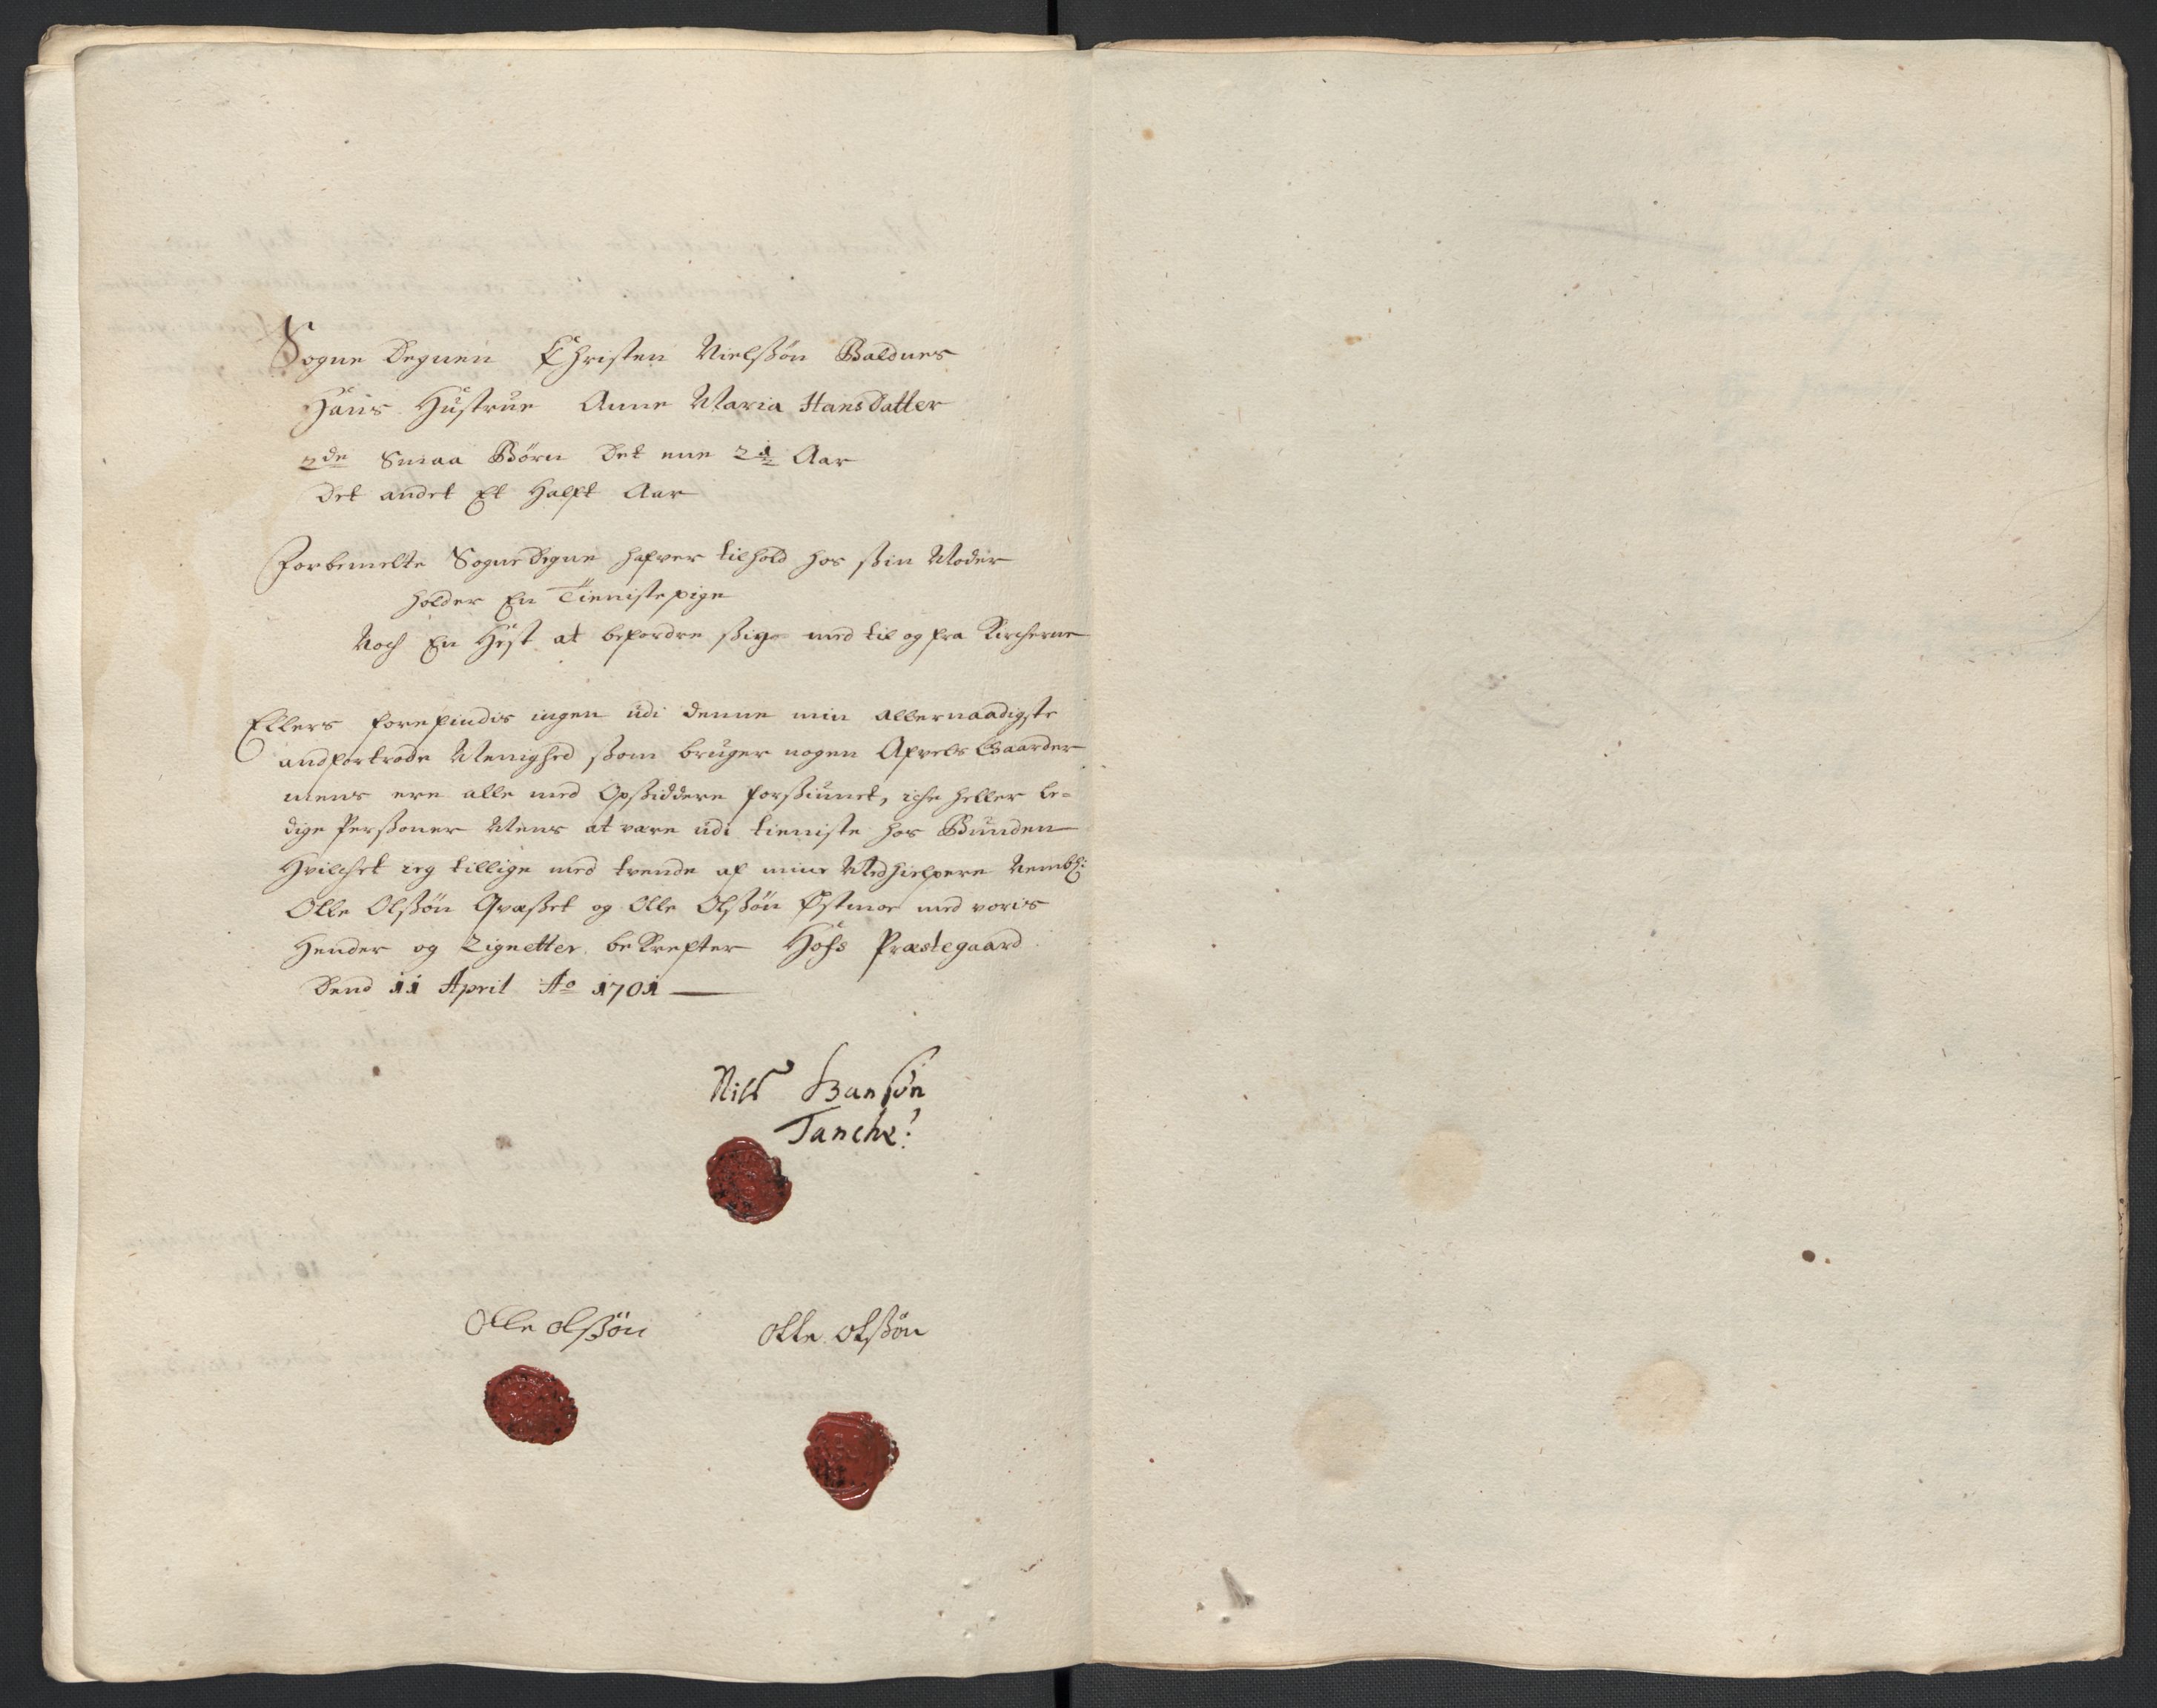 Sogne Degnen Christen Nielssøn Baldnes
Hans Hustrue Anne Maria Hans Datter
2de Smaa Børn Det ene 2½ Aar
Det andet Et Halft Aar
Forbemelte Sogne Degne hafver tilhold hos ssin Moder
holder En Tieniste pige
Noch En Hest at befordre ssig med til og fra Kircherne
Ellers forefindis ingen udi denne min allernaadigste
andfortrode Menighed ssom bruger nogen Afvels Gaarder
mens ere alle med Opssiddere forssiunet, iche heller le-
dige Perssoner Mens at være udi tieniste hos Bunden
Hvilchet ieg tillige med tvende af mine Medhielpere Nembl:
Olle Olssøn Qvasset og Olle Olssøn Østmoe med voris
Hender og Zignetter bekrefter Hofs Præstegaard
Dend 11 April Ao 1701
Nils Hansøn
Tanche
Olle olssøn Olle olssøn